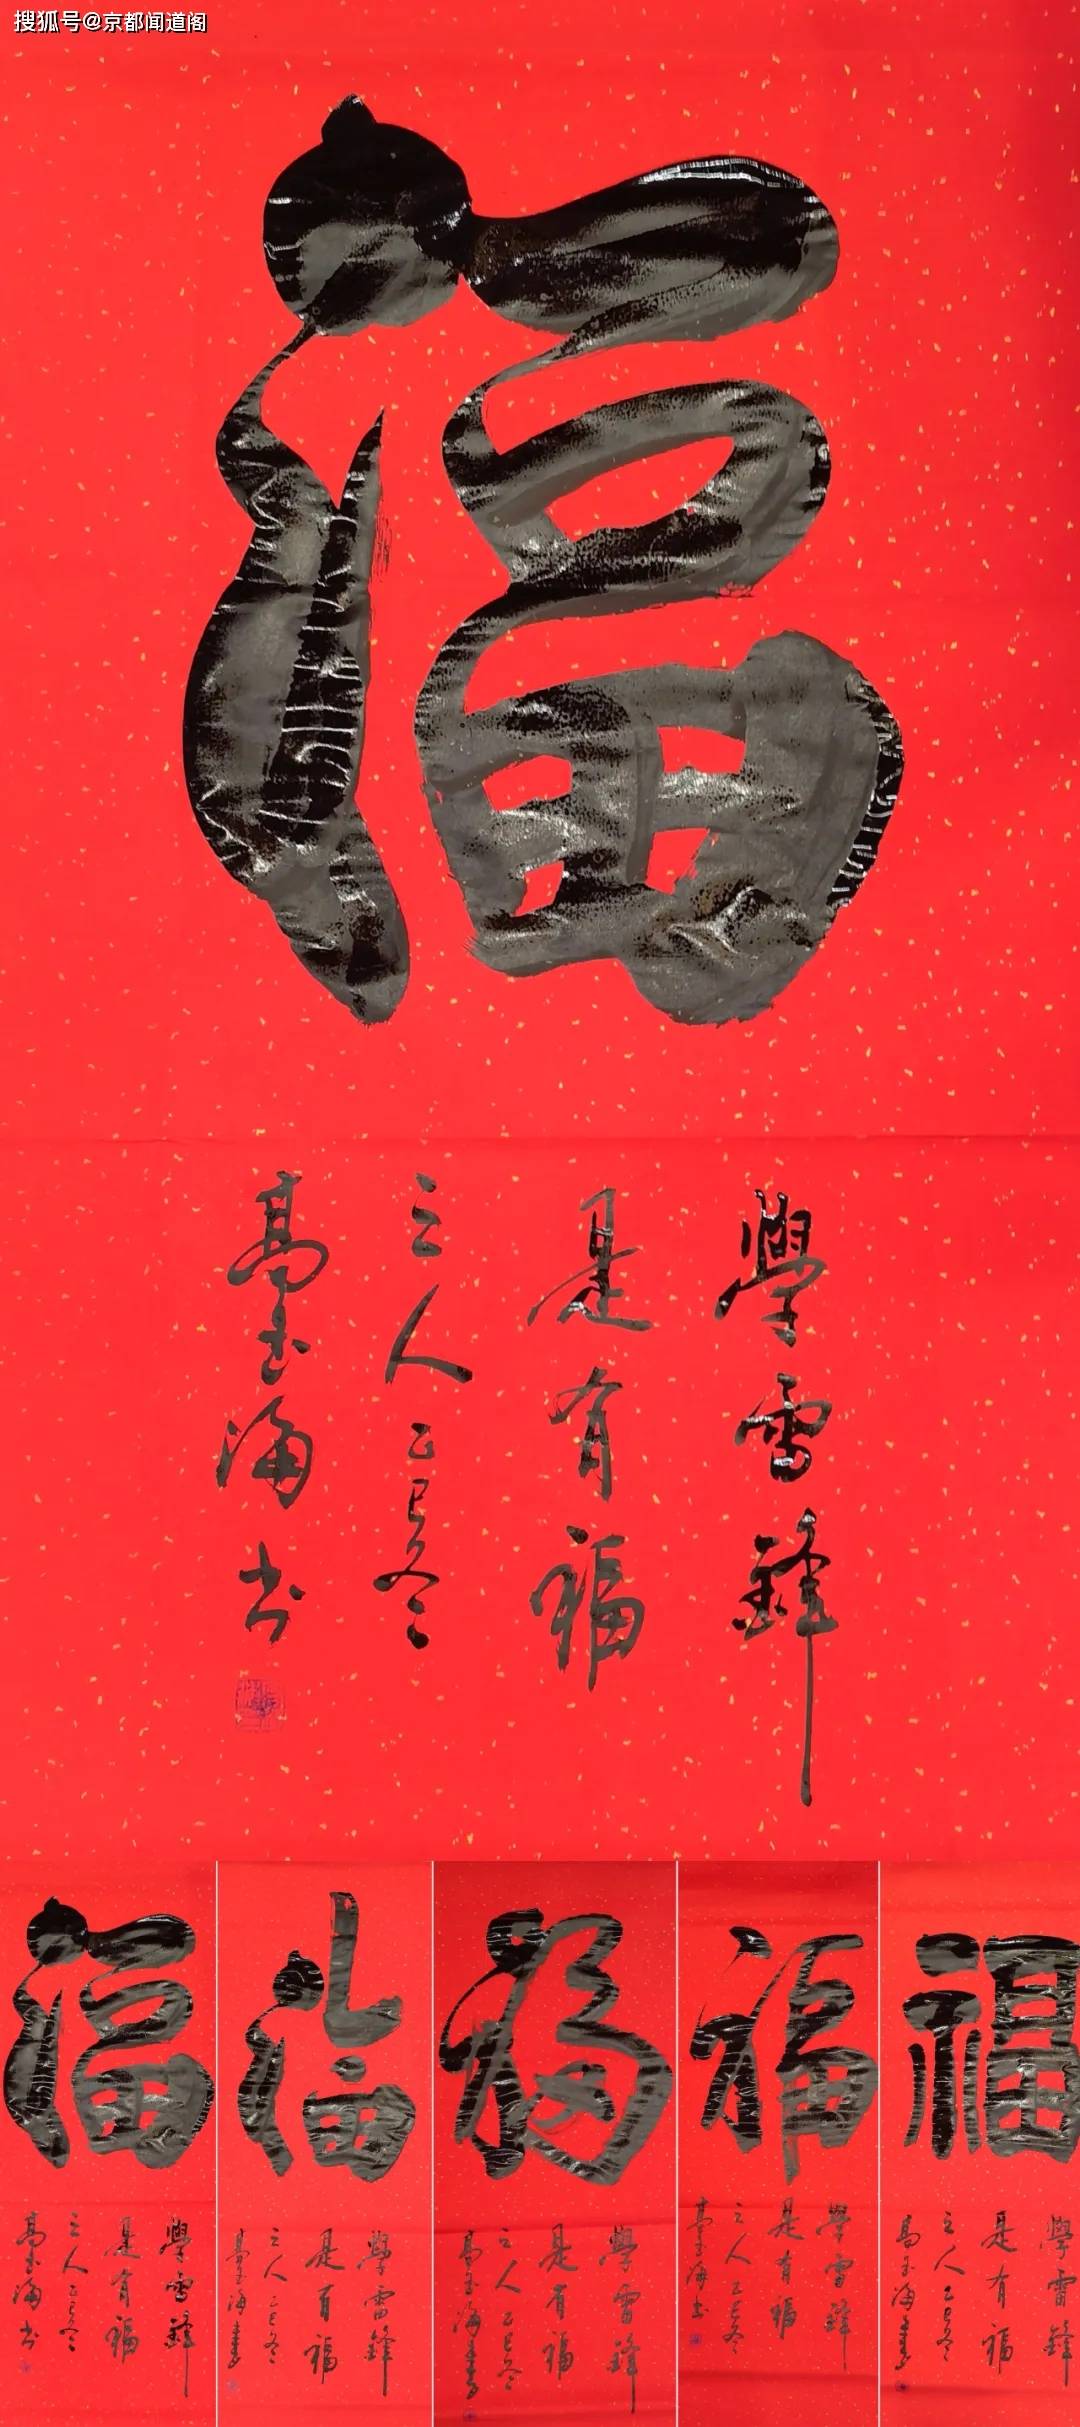 搜狐号@京都闻道阁
福
學雷鋒
是有福
之人 乙巳冬
高玉海书
福 福 福 福 福
學雷鋒
是有福
之人 乙巳冬
高玉海书
學雷鋒
是有福
之人 乙巳冬
高玉海書
學雷鋒
是有福
之人 乙巳冬
高玉海書
學雷鋒
是有福
之人 乙巳冬
高玉海书
學雷鋒
是有福
之人 乙巳冬
高玉海書